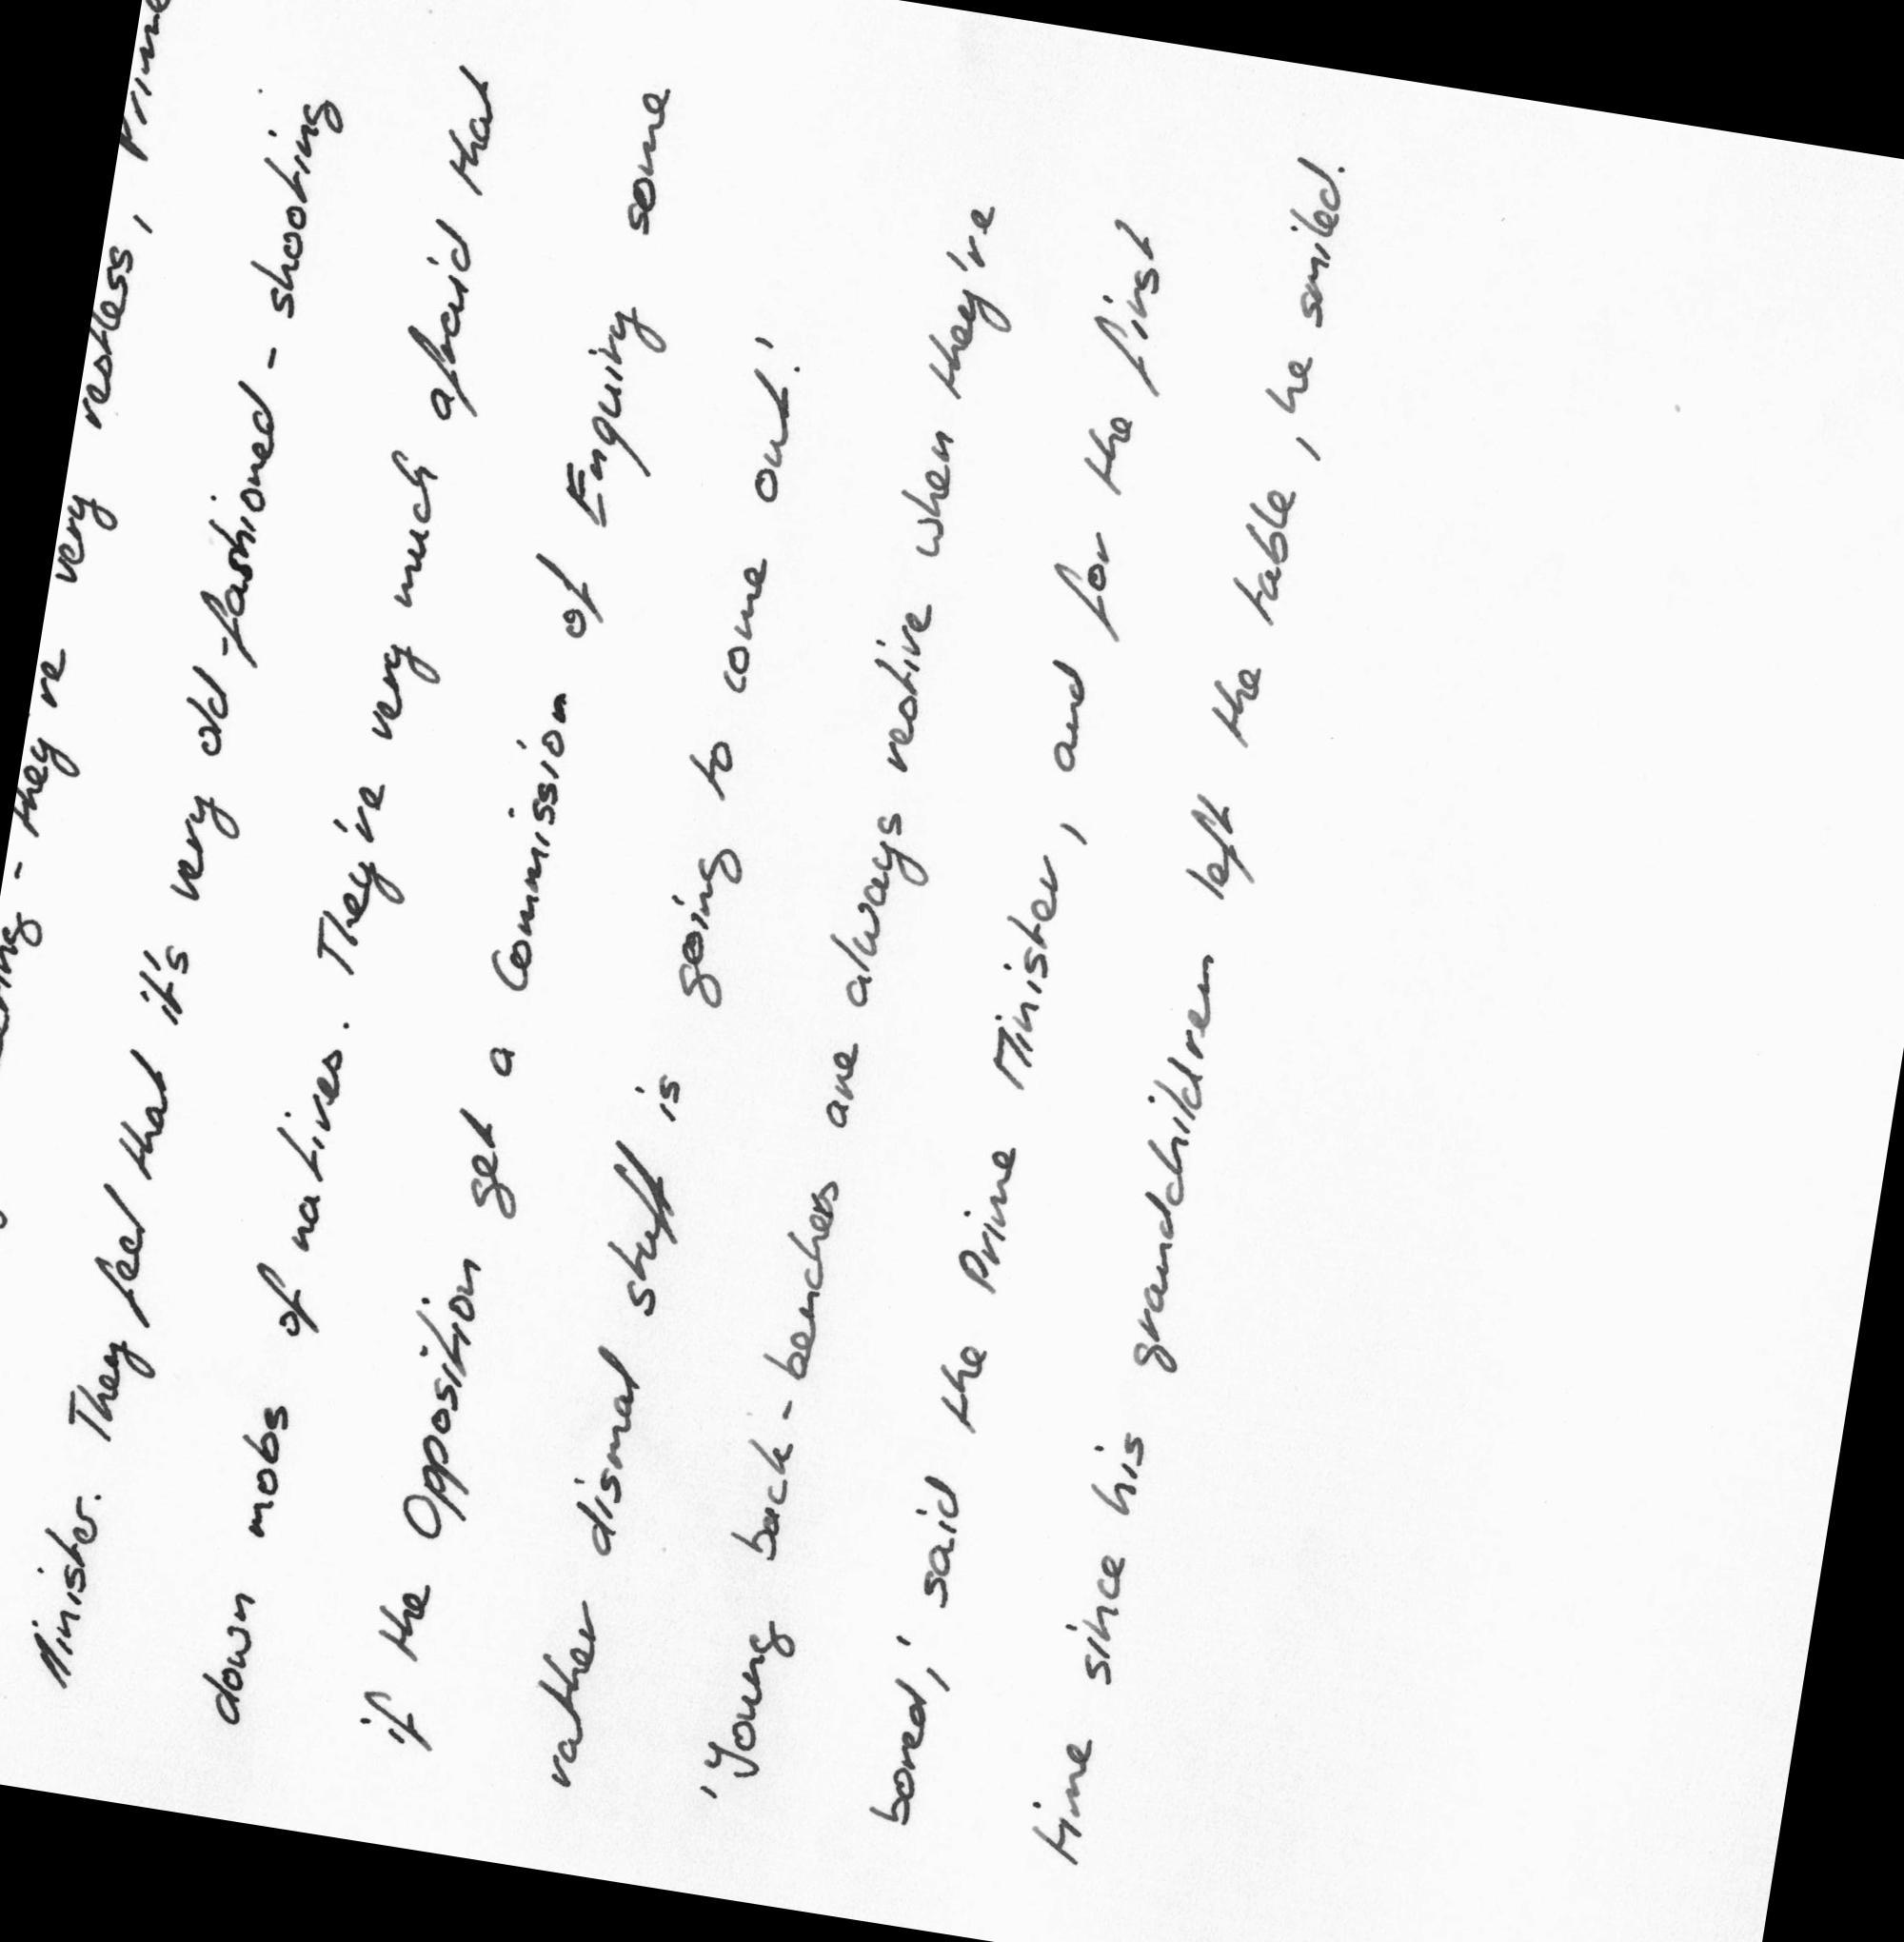 - they're very restless, Prime
Minister. They feel that it's very old-fashioned - shooting
down mobs of natives. They're very much afraid that
if the Opposition get a Commission of Enquiry some
rather dismal stuff is going to come out.'
'Young back-benchers are always restive when they're
bored,' said the Prime Minister, and for the first
time since his grandchildren left the table, he smiled.